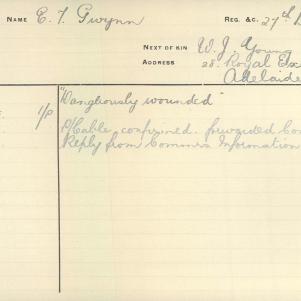 NAME E. T. Gwynn REG. &C. 27th B
NEXT OF KIN W. J. Young
ADDRESS 28 Royal Ex
Adelaide
1/P "Dangerously wounded"
P/Cable confirmed forwarded
Reply from Commrs Information